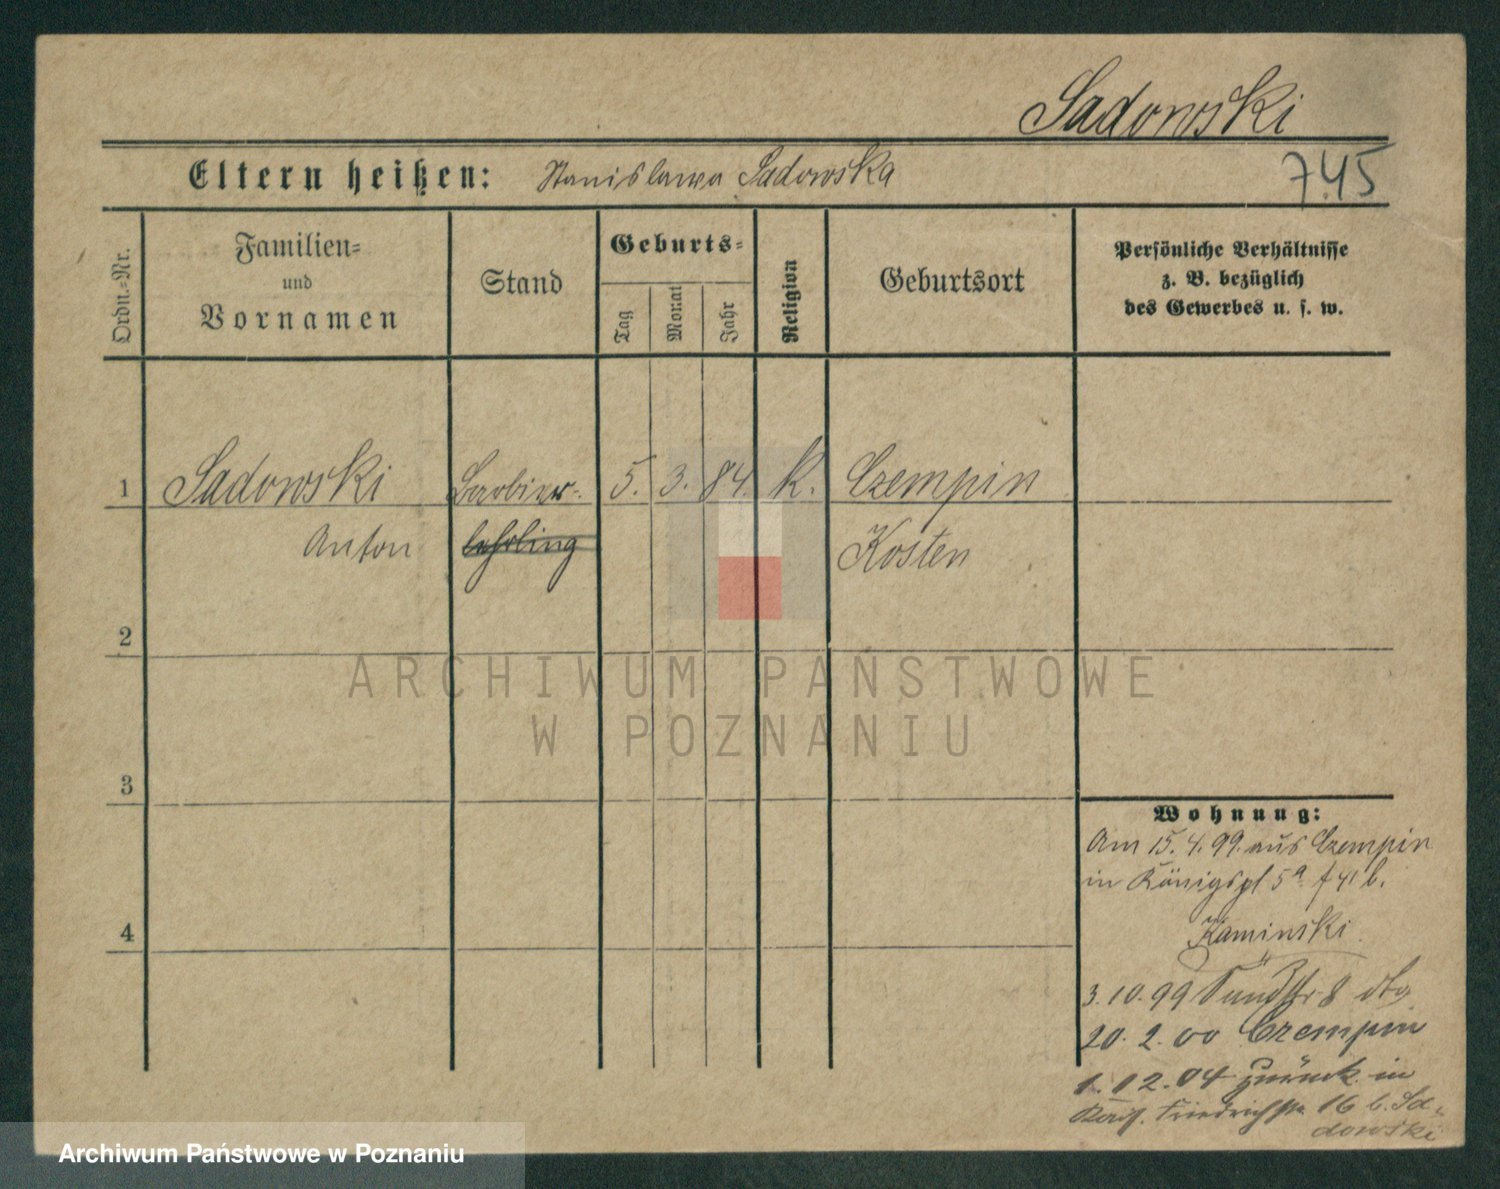 Sadowski
Eltern heißen: Stanislawa Sadowska
745
Ordn.-Nr.
Familien-
und
Vornamen
Stand
Geburts-
Tag
Monat
Jahr
Religion
Geburtsort
Persönliche Verhältnisse
z. B. bezüglich
des Gewerbes u. s. w.
1 Sadowski Barbier- 5. 3. 84. k. Czempin
Anton lehrling Kosten
2
3
4
Wohnung:
Am 15. 4. 99. aus Czempin
in Königspl 5a b.
Kaminski
3. 10. 99 8 dto
20. 2. 00 Czempin
1. 02. 04 zurück in
Kais. Friedrichstr. 16 b. Sa-
dowski
ARCHIWUM PAŃSTWOWE
W POZNANIU
Archiwum Państwowe w Poznaniu